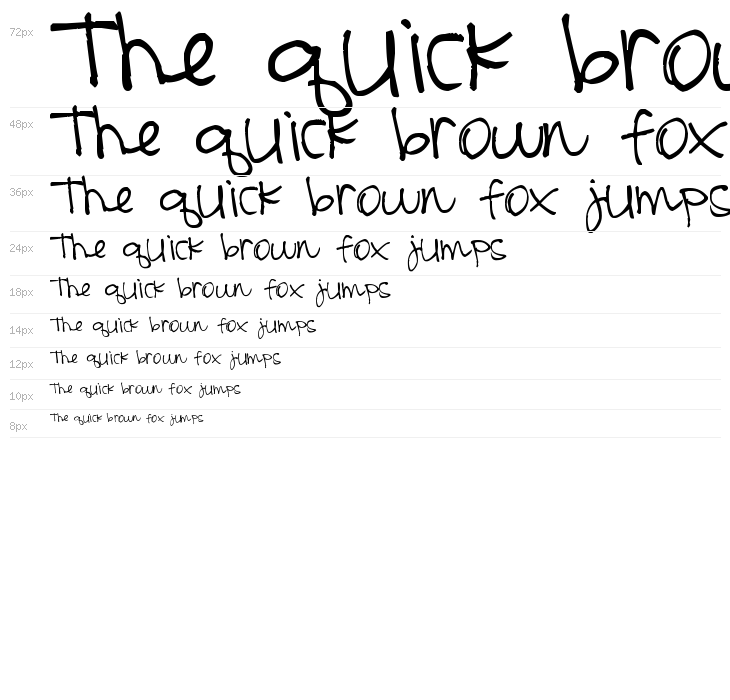 72px The quick brou
48px The quick brown fox
36px The quick brown fox jumps
24px The quick brown fox jumps
18px The quick brown fox jumps
14px The quick brown fox jumps
12px The quick brown fox jumps
10px The quick brown fox jumps
8px The quick brown fox jumps